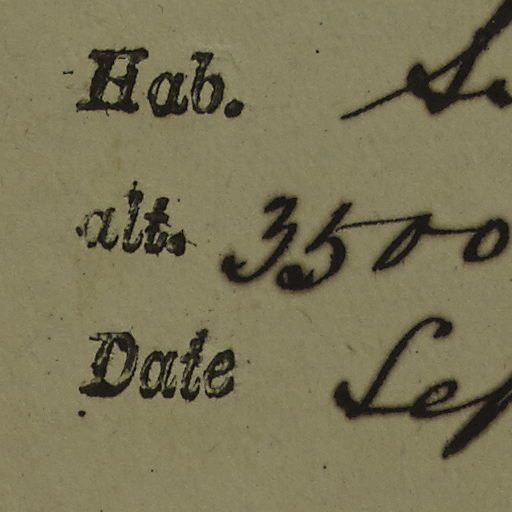 Hab.
alt. 3500
Date Sep